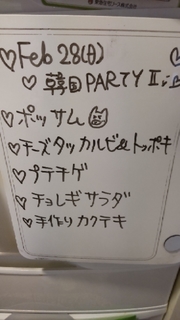 ♡Feb 28(日)
♡韓国PARTY Ⅱ
♡ポッサム
♡チーズタッカルビ&トッポキ
♡プテチゲ
♡チョレギサラダ
♡手作りカクテキ